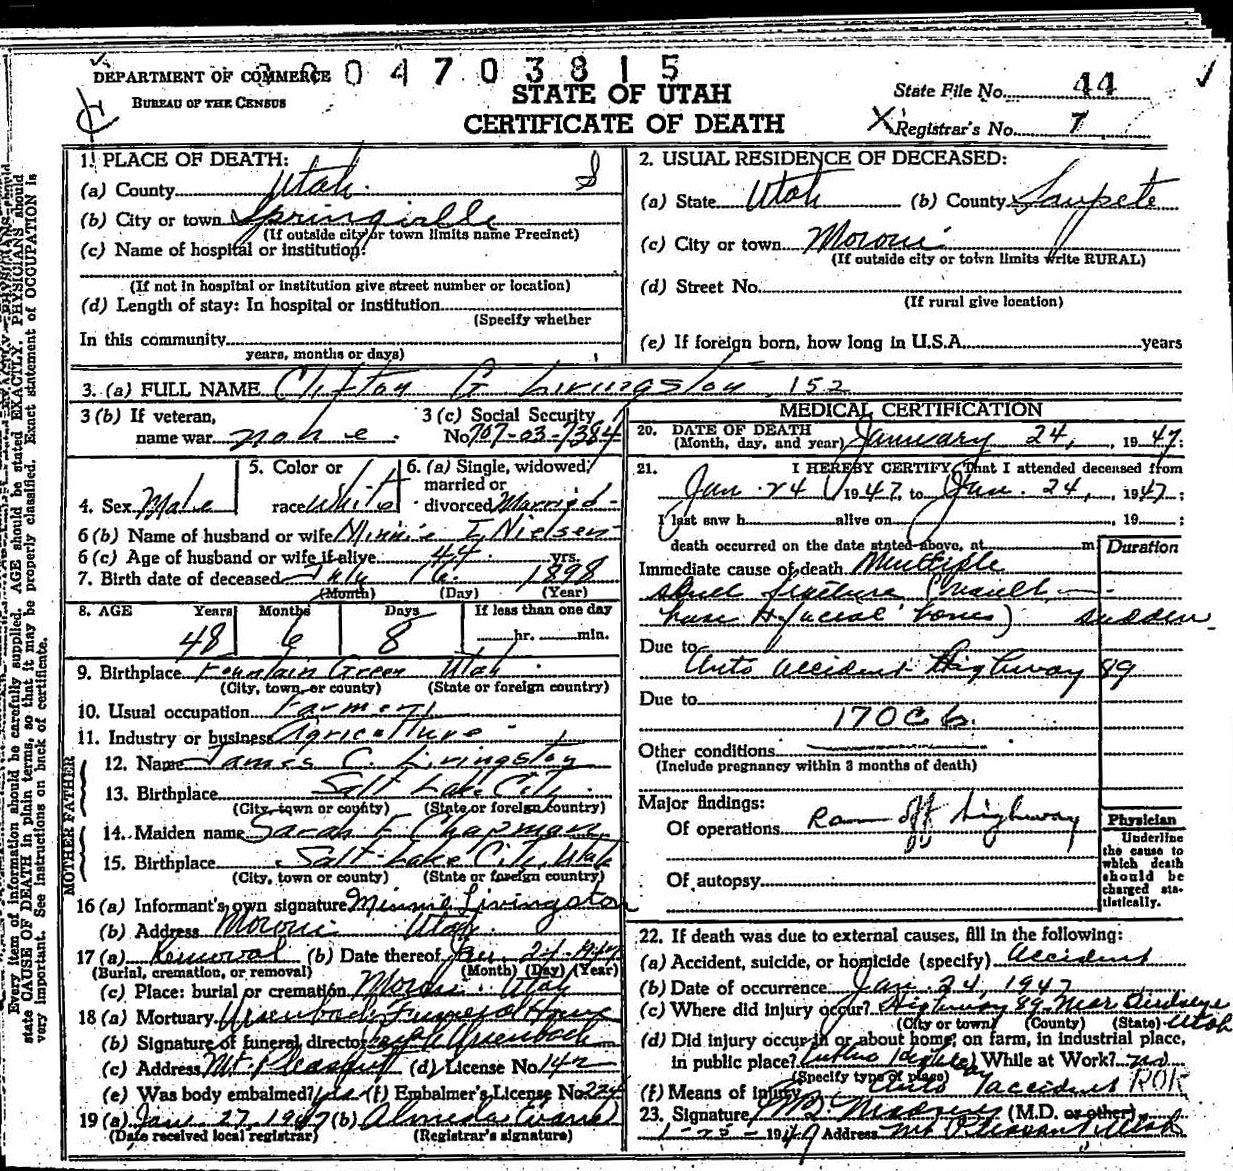 3 0 0 4 7 0 3 8 1 5
DEPARTMENT OF COMMERCE
BUREAU OF THE CENSUS
STATE OF UTAH
CERTIFICATE OF DEATH
State File No. 44
Registrar's No. 7
1. PLACE OF DEATH:
(a) County Utah
(b) City or town Springville
(If outside city or town limits name Precinct)
(c) Name of hospital or institution:
(If not in hospital or institution give street number or location)
(d) Length of stay: In hospital or institution
(Specify whether
In this community
years, months or days)
2. USUAL RESIDENCE OF DECEASED:
(a) State Utah (b) County Sanpete
(c) City or town Moroni
(If outside city or town limits write RURAL)
(d) Street No.
(If rural give location)
(e) If foreign born, how long in U.S.A. years
3. (a) FULL NAME Clifton G. Livingston 152
3 (b) If veteran, name war none
3 (c) Social Security No. 707-03-7384
4. Sex Male
5. Color or race White
6. (a) Single, widowed, married or divorced Married
6 (b) Name of husband or wife Minnie I. Nielsen
6 (c) Age of husband or wife if alive 44 yrs.
7. Birth date of deceased July 16 1898
(Month) (Day) (Year)
8. AGE Years Months Days If less than one day
48 6 8 hr. min.
9. Birthplace Fountain Green Utah
(City, town, or county) (State or foreign country)
10. Usual occupation Farmer
11. Industry or business Agriculture
FATHER
12. Name James C. Livingston
13. Birthplace Salt Lake City
(City, town or county) (State or foreign country)
MOTHER
14. Maiden name Sarah E Chapman
15. Birthplace Salt Lake City, Utah
(City, town or county) (State or foreign country)
16 (a) Informant's own signature Minnie Livingston
(b) Address Moroni Utah
17 (a) Removal (b) Date thereof Jan. 24 1947
(Burial, cremation, or removal) (Month) (Day) (Year)
(c) Place: burial or cremation Moroni Utah
18 (a) Mortuary Ursenbach Funeral Home
(b) Signature of funeral director Ursenbach
(c) Address Mt. Pleasant (d) License No. 142
(e) Was body embalmed? yes (f) Embalmer's License No. 224
19 (a) Jan. 27, 1947 (b) Almeda
(Date received local registrar) (Registrar's signature)
MEDICAL CERTIFICATION
20. DATE OF DEATH
(Month, day, and year) January 24, 1947.
21. I HEREBY CERTIFY, That I attended deceased from
Jan. 24 1947, to Jan. 24, 1947;
I last saw h alive on , 19 ;
death occurred on the date stated above, at m
Duration
Immediate cause of death Multiple
skull fracture (Vault
base & facial bones) sudden
Due to
Auto accident Highway 89
Due to
170C6.
Other conditions
(Include pregnancy within 3 months of death)
Major findings:
Of operations Ran off highway
Of autopsy
Physician
Underline
the cause to
which death
should be
charged sta-
tistically.
22. If death was due to external causes, fill in the following:
(a) Accident, suicide, or homicide (specify) Accident
(b) Date of occurrence Jan. 24, 1947
(c) Where did injury occur? Highway 89, Near Birdseye
(City or town) (County) (State) Utah
(d) Did injury occur in or about home, on farm, in industrial place,
in public place? Public While at Work? no
(Specify type of place)
(f) Means of injury Auto accident ROR
23. Signature (M.D. or other)
1-25-1947 Address Mt Pleasant Utah
Every item of information should be carefully supplied. AGE should be stated EXACTLY. PHYSICIANS should
state CAUSE OF DEATH in plain terms, so that it may be properly classified. Exact statement of OCCUPATION is
very important. See instructions on back of certificate.